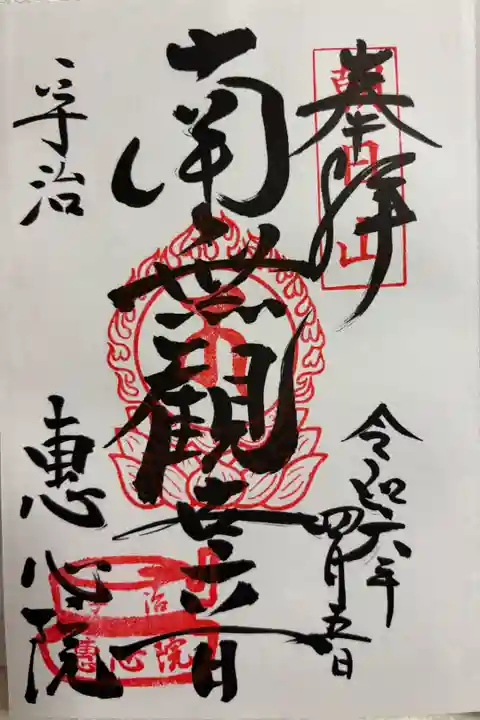 奉拝
朝日山
令和六年
四月五日
南無観世音
宇治
恵心院
宇治
恵心院